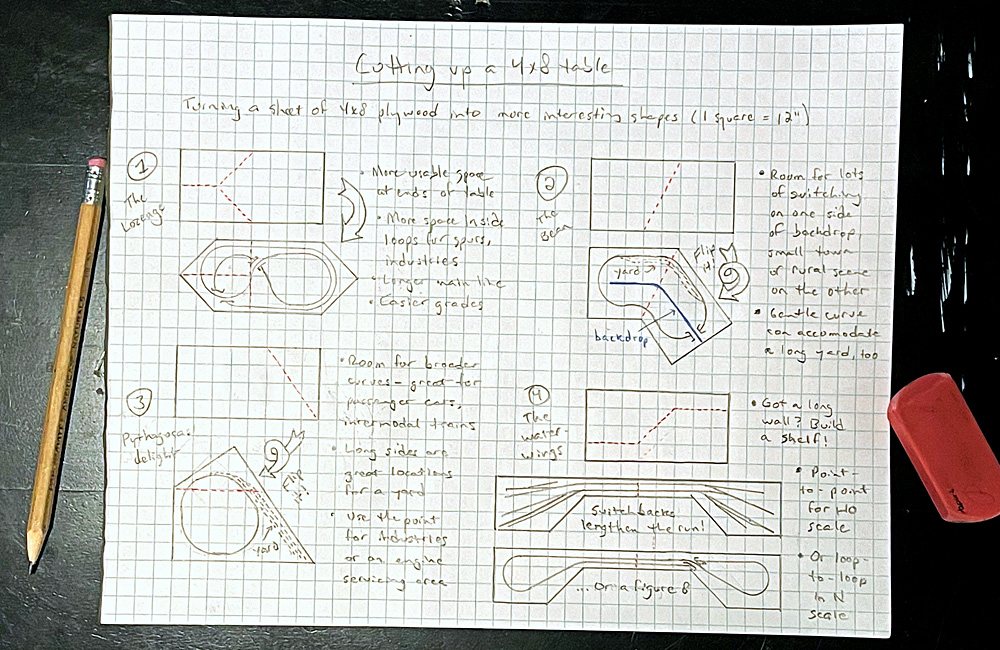 Cutting up a 4x8 table
Turning a sheet of 4x8 plywood into more interesting shapes (1 square = 12")
1
The
Lozenge
• More usable space
at ends of table
• More space inside
loops for spurs,
industries
• Longer main line
• Easier grades
2
The
Bean
Flip
it!
yard
backdrop
• Room for lots
of switching
on one side
of backdrop,
small town
or rural scene
on the other
• Gentle curve
can accomodate
a long yard, too
3
Pythagoras'
delight
Flip
it!
yard
• Room for broader
curves – great for
passenger cars,
intermodal trains
• Long sides are
great locations
for a yard
• Use the point
for industries
or an engine
servicing area
4
The
water-
wings
• Got a long
wall? Build
a shelf!
Switchbacks
lengthen the run!
• Point-
to-point
for HO
scale
... Or a figure 8
• Or loop-
to-loop
in N
scale